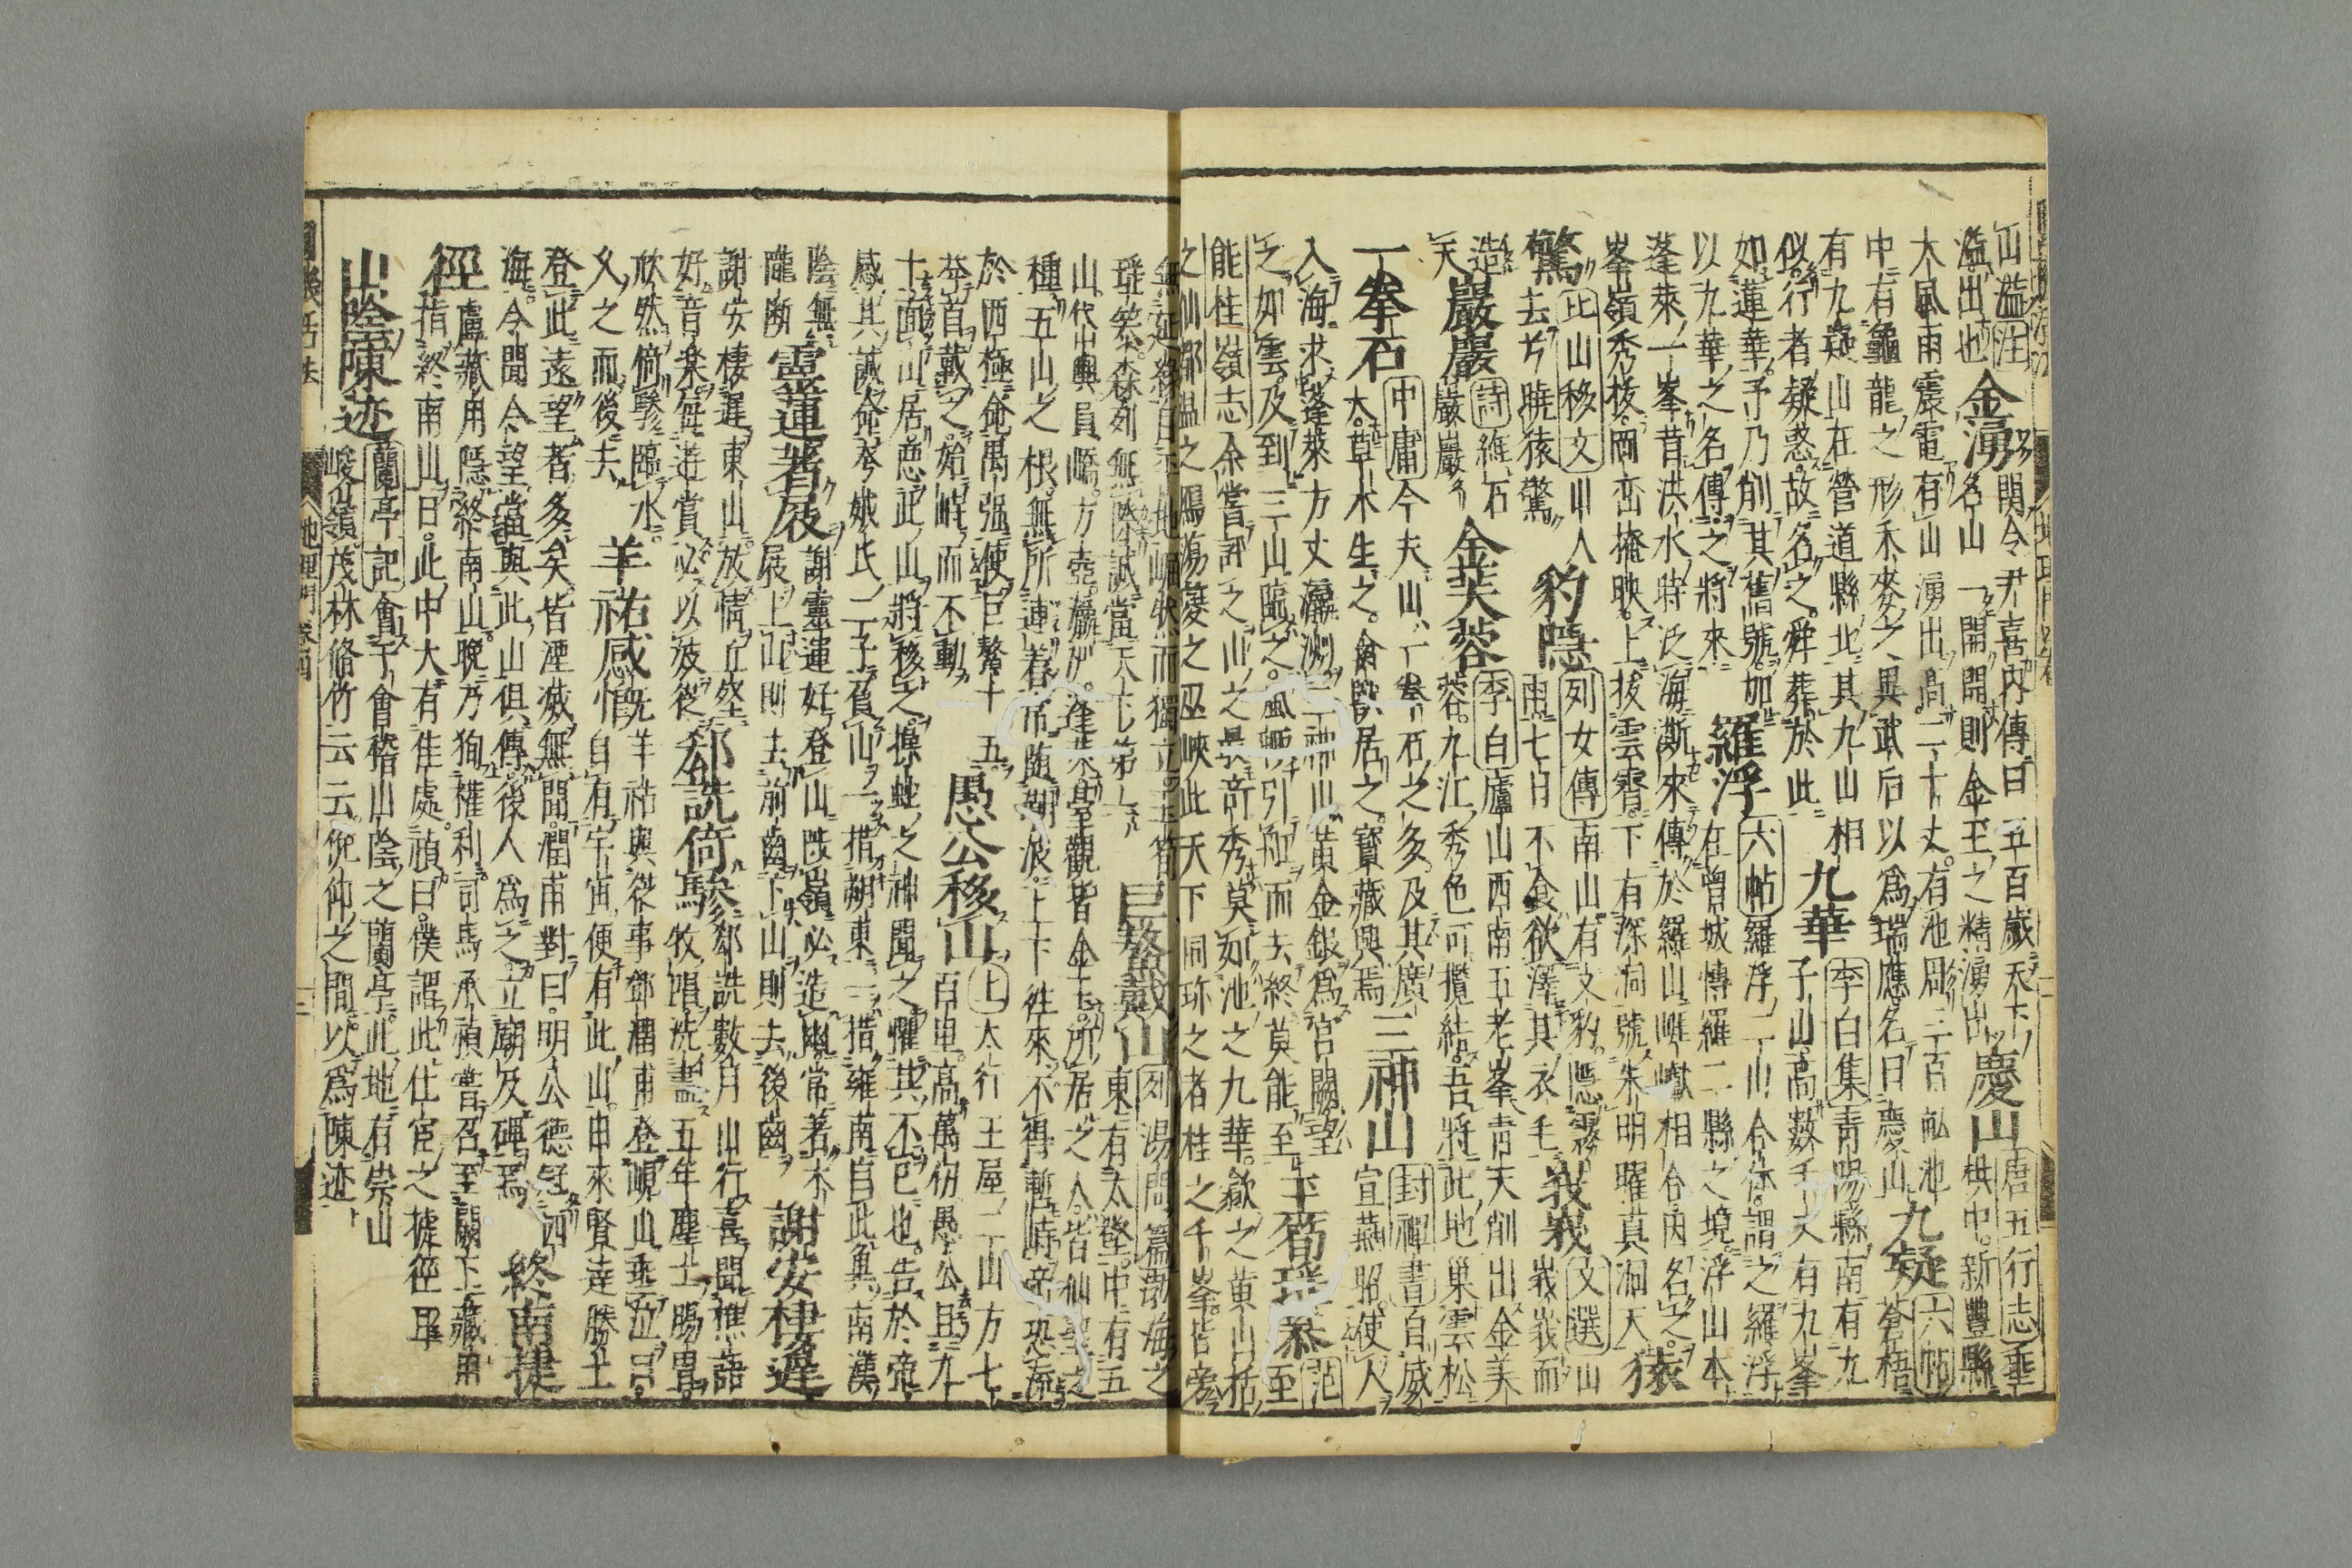 山溢注
溢出也
金湧 関令尹喜内傳曰五百歳天下
名山一開開則金玉之精湧出
慶山 唐五行志垂
拱中新豊縣
大風雨震電有山湧出高二十丈有池周三百畝池
中有龜龍之形禾麥之異武后以為瑞應名曰慶山
九疑 六帖
蒼梧
有九疑山在營道縣北其九山相
似行者疑惑故名之舜葬於此
九華 李白集青陽縣南有九
子山高數千丈有九峯
如蓮華予乃削其舊號加
以九華之名傳之將來
羅浮 六帖羅浮二山合体謂之羅浮
在曽城愽羅二縣之境浮山本
蓬萊一峯昔洪水時泛海斯來傳於羅山
峯嶺秀拔岡峦掩映上拔雲霄下有深洞號朱明曜真洞天
猿
驚 北山移文山人
去兮暁猿驚
豹隠 列女傳南山有文豹隠霧
雨七日不食欲澤其衣毛
峩峩 文選山
峩峩而
造
天
巖巖 詩維石
巖巖
金芙蓉 李白廬山西南五老峯青天削出金芙
蓉九江秀色可攬結吾將此地巢雲松
一拳石 中庸今夫山一拳石之多及其廣
大草木生之禽獸居之寳藏興焉
三神山 封禪書自威
宣燕昭使人
入海求蓬萊方丈瀛洲三神山黄金銀為宮闕望
之如雲及到三山臨之風輒引舡而去終莫能至
玉筍瑶篸
至
能桂嶺志余嘗評之山之景竒秀莫如池之九華歙之黄山括
之仙都温之鴈蕩夔之巫峽此天下同珎之者桂之千峯皆旁
無延縁自平地崛然而獨立玉筍
瑶篸森列無際誠當天下第一
巨鰲戴山 列湯問篇渤海之
東有大壑中有五
山代輿員嶠方壺瀛洲蓬萊臺觀皆金玉所居之人皆仙聖之
種五山之根無所連着常随潮波上下徃來不得暫峙帝恐流
於西極命禺强使巨鰲十五
舉首戴之始峙而不動
愚公移山 上太行王屋二山方七
百里高萬仞愚公且九
十面山居惡此山將移之操蛇之神聞之懼其不已也告於帝
感其誠命夸娥氏二子負山一措朔東一措雍南自此冀南漢
陰無
隴断
靈運著屐 謝靈運好登山陟嶺必造幽常著木
屐上山則去前齒下山則去後齒
謝安棲遲
謝安棲遲東山放情丘壑
好音楽毎遊賞必以妓従
郄詵倚驂 郄詵數月山行喜聞樵語
牧唱洗盡五年塵土膓胃
欣然倚驂臨水
久之而後去
羊祜感慨 羊祜與從事鄒潤甫登峴山垂泣曰
自有宇宙便有此山由來賢達勝士
登此遠望者多矣皆湮滅無聞潤甫對曰明公德冠四
海令聞令望當與此山倶傳後人為之立廟及碑焉
終南捷
徑 盧藏用隠終南山晩乃狥權利司馬承禎嘗召至闕下藏用
指終南山曰此中大有佳處禎曰僕謂此仕宦之捷徑耳
山陰陳迹 蘭亭記會于會稽山陰之蘭亭此地有崇山
峻嶺茂林脩竹云云俛仰之間以為陳迹
地理門